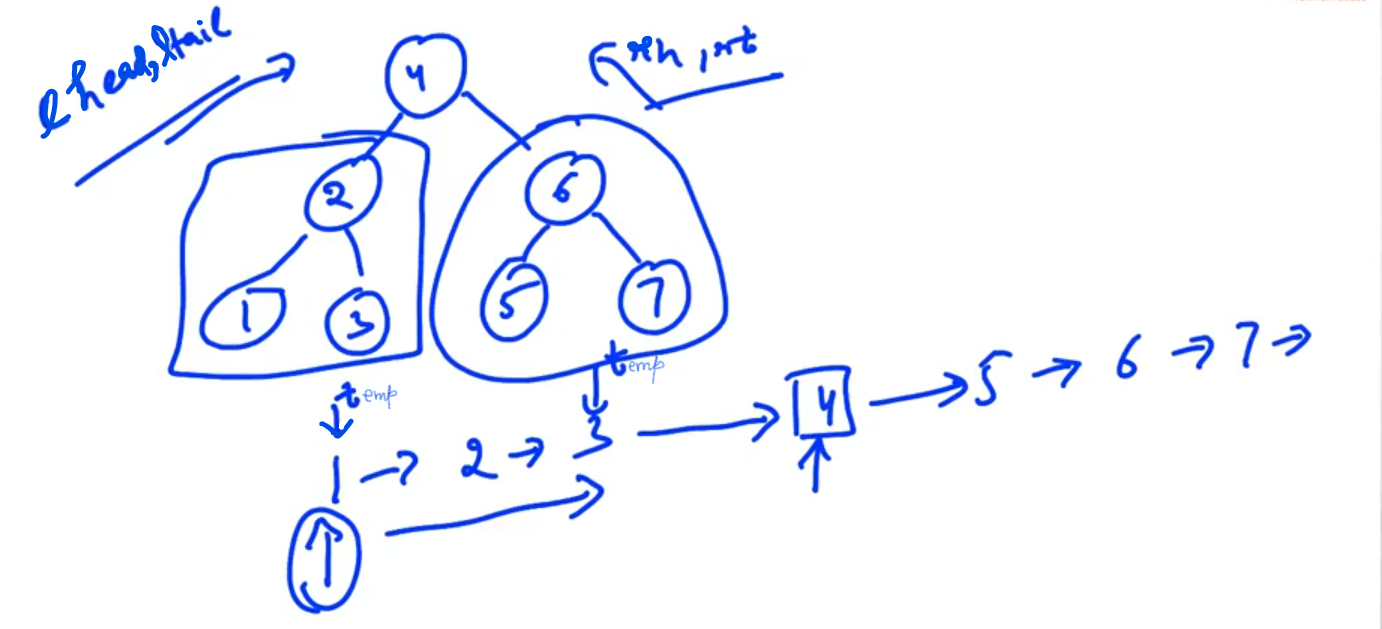 lhead, ltail
rh, rt
4
2
6
1
3
5
7
temp
temp
1 → 2 → 3 → 4 → 5 → 6 → 7 →